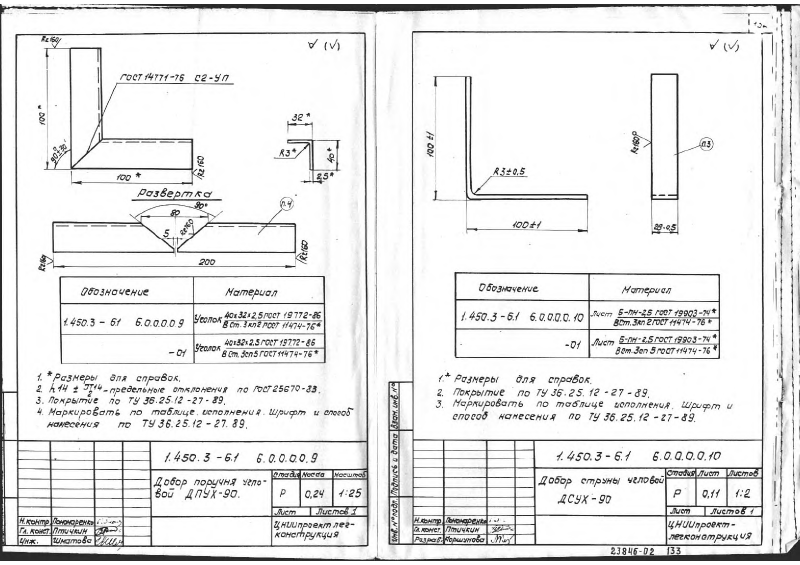 Rz160
√ (√)
ГОСТ 14771-76 С2-УП
100*
90°±30'
100*
Rz160
32*
R3*
40*
2,5*
Развертка
90°
80
5
Rz160
п.4
Rz160
200
Rz160
Обозначение Материал
1.450.3 - 6.1 6.0.0.0.0.9 Уголок 40х32х2,5 ГОСТ 19772-86
В Ст.3кп2 ГОСТ 11474-76*
-01 Уголок 40х32х2,5 ГОСТ 19772-86
В Ст.3сп5 ГОСТ 11474-76*
1. * Размеры для справок.
2. h14 ± IT14/2 - предельные отклонения по ГОСТ 25670-83.
3. Покрытие по ТУ 36.25.12-27-89.
4. Маркировать по таблице исполнения. Шрифт и способ
нанесения по ТУ 36.25.12-27.89.
1.450.3 - 6.1 6.0.0.0.0.9
Добор поручня угло-
вой ДПУХ-90.
Стадия Масса Масштаб
Р 0,24 1:25
Лист Листов 1
ЦНИИпроектлег-
конструкция
Н.контр. Пономаренко
Гл. конст. Птичкин
Инж. Шматова
√ (√)
100±1
R3±0,5
100±1
Rz160
п.3
25±0,5
Обозначение Материал
1.450.3 - 6.1 6.0.0.0.0.10 Лист Б-ПН-2,5 ГОСТ 19903-74*
В Ст.3кп2 ГОСТ 11474-76*
-01 Лист Б-ПН-2,5 ГОСТ 19903-74*
В Ст.3сп5 ГОСТ 11474-76*
1.* Размеры для справок.
2. Покрытие по ТУ 36.25.12-27-89.
3. Маркировать по таблице исполнения. Шрифт и
способ нанесения по ТУ 36.25.12-27-89.
Взам. инв. №
Подпись и дата
Инв. № подл.
1.450.3 - 6.1 6.0.0.0.0.10
Добор струны угловой
ДСУХ-90
Стадия Лист Листов
Р 0,11 1:2
Лист Листов 1
ЦНИИпроект-
легконструкция
Н.контр. Пономаренко
Гл. конст. Птичкин
Разраб. Коршунова
23846-02 133